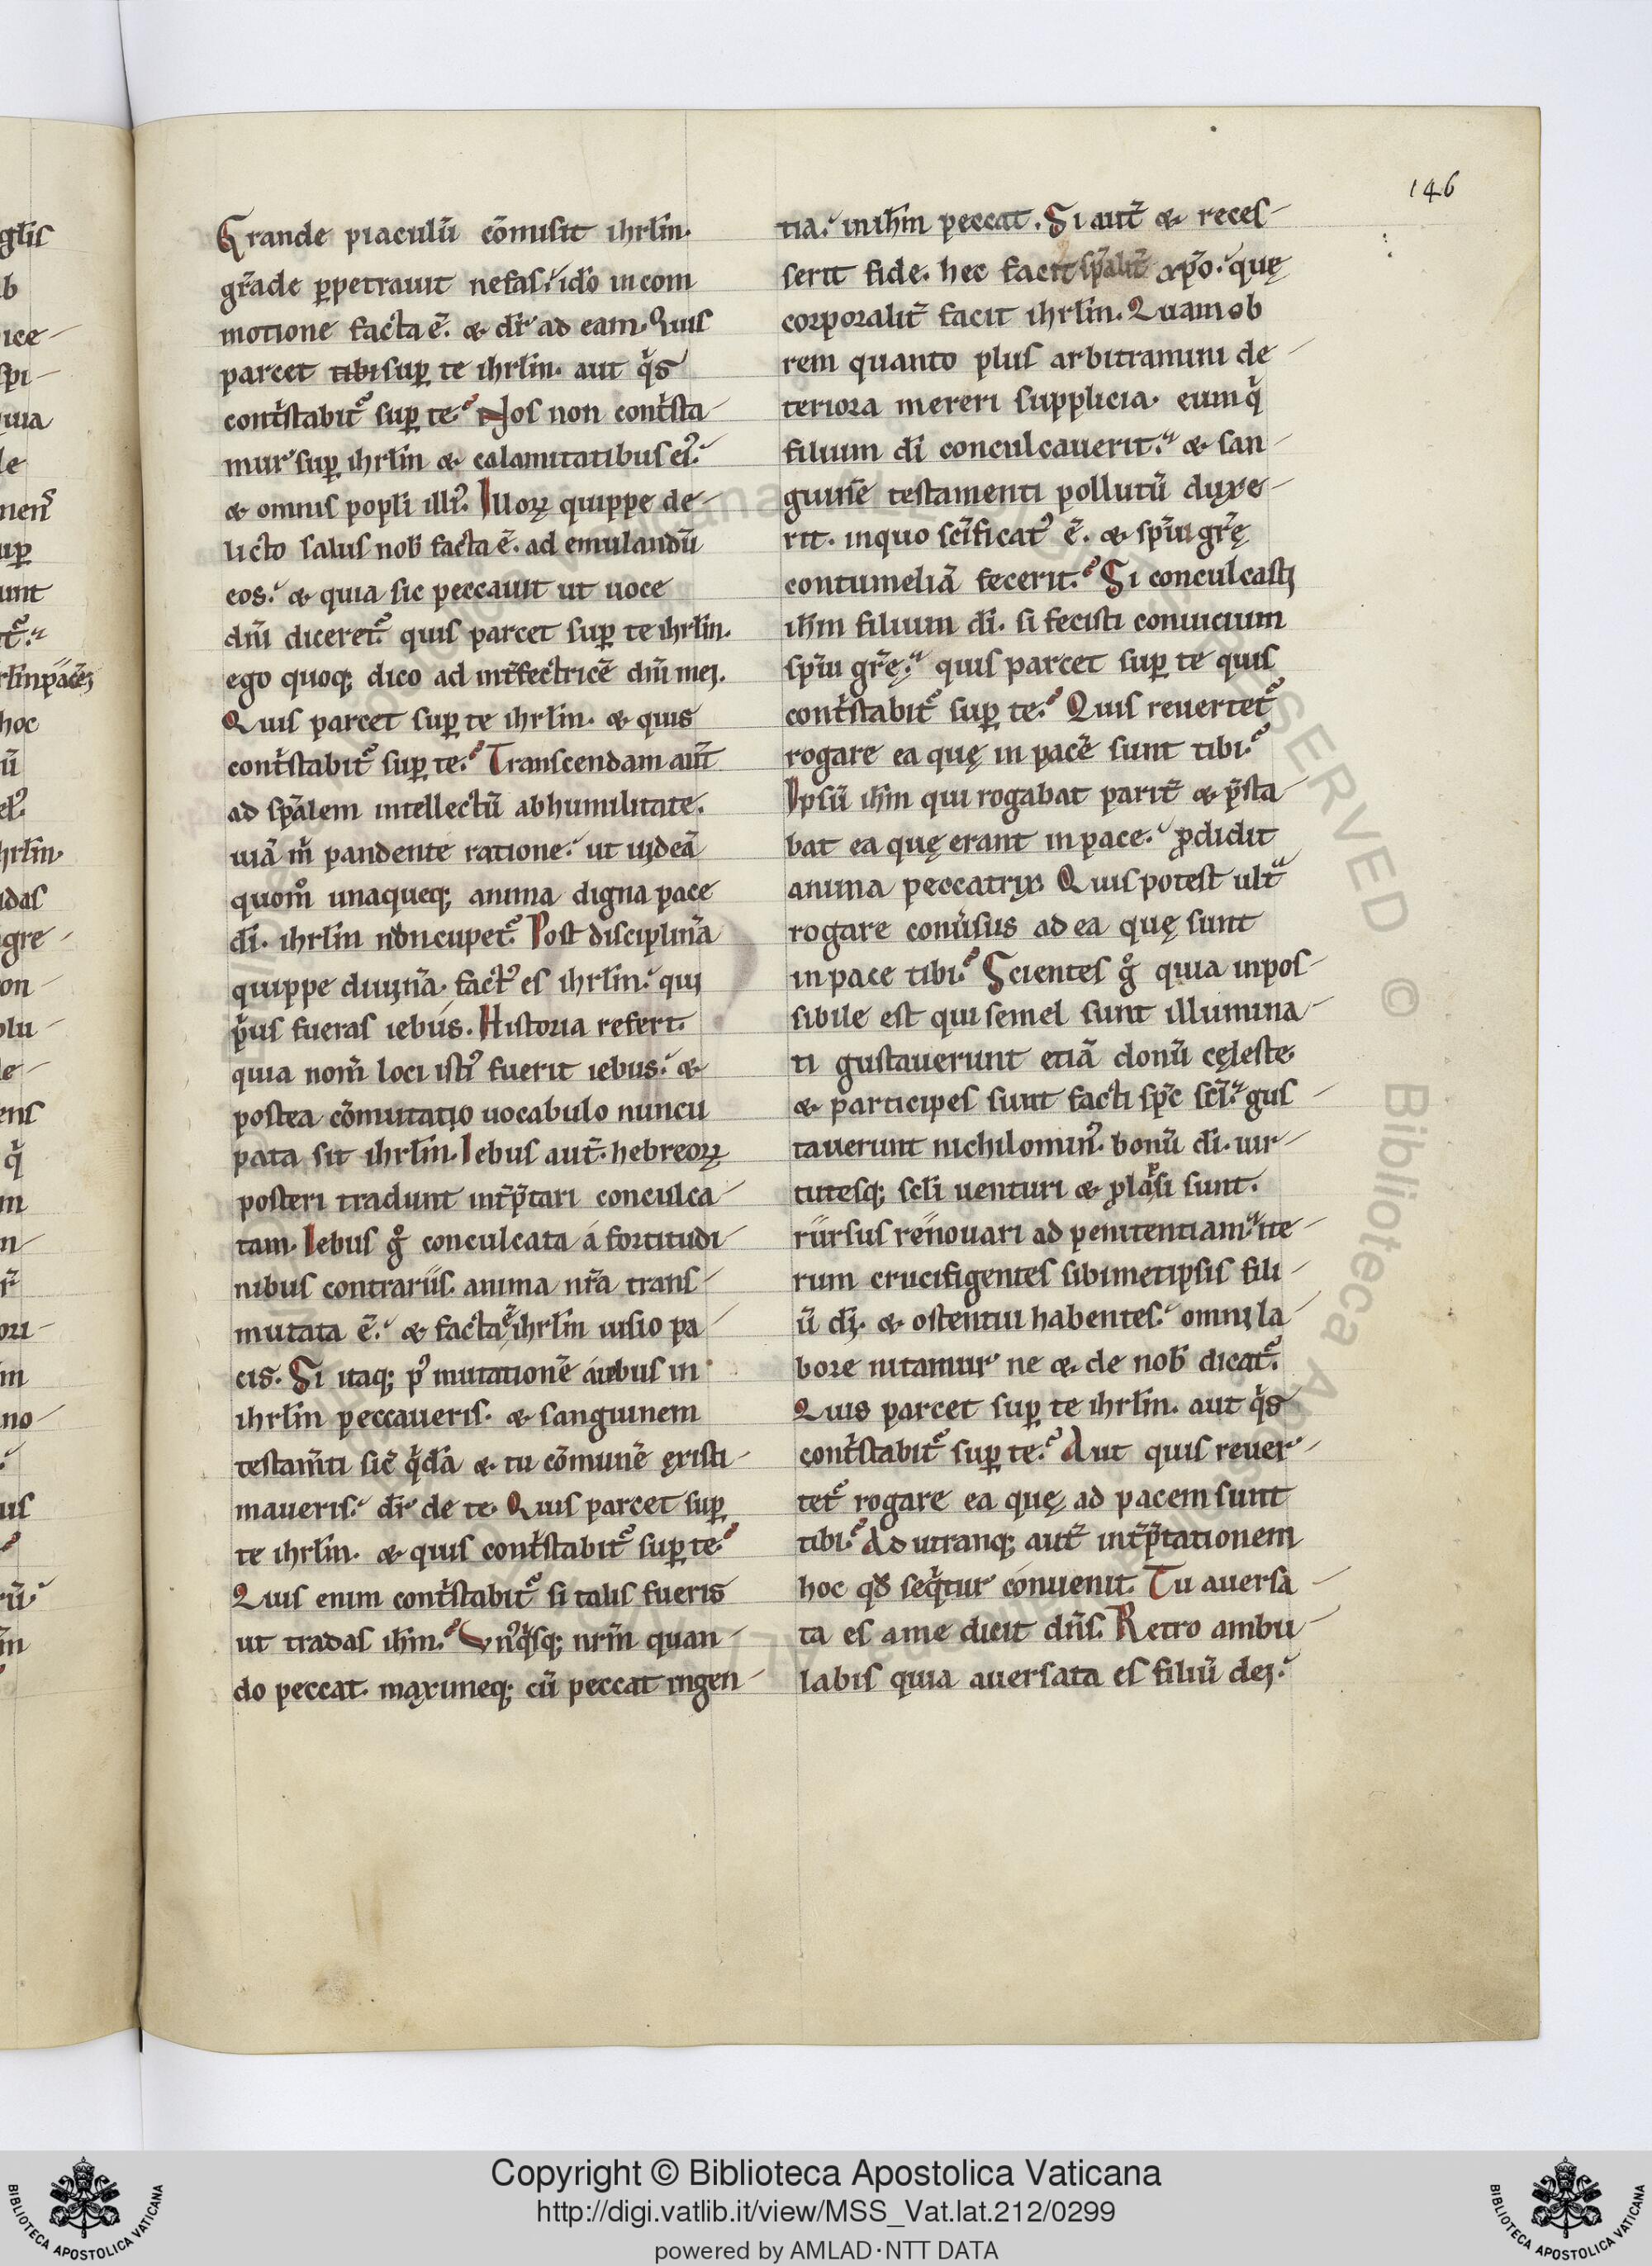 146
Grande piaculū cōmisit ihrlm̄.
gr̄ade ꝑpetrauit nefas. id̄o in com
motione facta ē. & dr̄ ad eam. Quis
parcet tibi suꝑ te ihrlm̄. aut q̇s
contͥstabit᷑ suꝑ te. Nos non contͥsta
mur suꝑ ihrlm̄ & calamitatibus eiꝰ.
& omnis popl̄i illiꝰ. Illoꝝ quippe de
licto salus nob̄ facta ē. ad emulandū
eos. & quia sic peccauit ut uoce
dn̄i diceret᷑ quis parcet suꝑ te ihrlm̄.
ego quoq; dico ad int̄fectricē dn̄i mei.
Quis parcet suꝑ te ihrlm̄. & quis
contͥstabit᷑ suꝑ te. Transcendam aut̄
ad sp̄alem intellectū ab humilitate.
uiā m̄ pandente ratione. ut uideā
quom̊ unaqueq; anima digna pace
dī. ihrlm̄ noncupet᷑. Post disciplinā
quippe diuinā. fact᷒ es ihrlm̄. qui
pͥus fueras iebus. Historia refert.
quia nom̄ loci istiꝰ fuerit iebus. &
postea cōmutatio uocabulo nuncu
pata sit ihrlm̄. Iebus aut̄. hebreoꝝ
posteri tradunt int̄p̄tari conculca
tam. Iebus g̊ conculcata á fortitudi
nibus contrariis. anima nr̄a trans
mutata ē. & facta ē ihrlm̄ uisio pa
cis. Si itaq; pꝰ mutationē aiebus in
ihrlm̄ peccaueris. & sanguinem
testam̄ti sic̄ q̇dā & tu cōmunē ęxisti
maueris. dr̄ de te. Quis parcet suꝑ
te ihrlm̄. & quis contͥstabit᷑ suꝑ te.
Quis enim contͥstabit᷑ si talis fueris
ut tradas ih̄m. Vn᷒q̇sq; nr̄m quan
do peccat. maximeq; cū peccat ingen
tia. in ih̄m peccat. Si aut̄ & reces
serit fide. hec facit sp̄alit̄ xp̄o. quę
corporalit̄ facit ihrlm̄. Quam ob
rem quanto plus arbitramini de
teriora mereri supplicia. eum q̇
filium dī conculcauerit. & san
guinē testamenti pollutū dyxe
rit. in quo scīficat᷒ ē. & sp̄ui gr̄ę
contumeliā fecerit. Si conculcasti
ih̄m filium dī. si fecisti conuicium
sp̄ui gr̄ę. quis parcet suꝑ te quis
contͥstabit᷑ suꝑ te. Quis reuertet᷑
rogare ea quę in pacē sunt tibi.
Ipsū ih̄m qui rogabat parit̄ & p̄sta
bat ea quę erant in pace. ꝓdidit
anima peccatrix. Quis potest ultᵃ
rogare conūsus ad ea quę sunt
in pace tibi. Scientes g̊ quia inpos
sibile est qui semel sunt illumina
ti gustauerunt etiā donū cęleste.
& participes sunt facti sp̄c scī. gus
tauerunt nichilominꝰ. bonū dī. uir
tutesq; scl̄i uenturi & plapsi sunt.
rursus renouari ad penitentiam. ite
rum crucifigentes sibimetipsis fili
ū dī. & ostentui habentes. omni la
bore nitamur ne & de nob̄ dicat᷑.
Quis parcet suꝑ te ihrlm̄. aut q̇s
contͥstabit᷑ suꝑ te. Aut quis reuer
tet᷑ rogare ea quę ad pacem sunt
tibi. Ad utranq; aut̄ int̄p̄tationem
hoc qđ seq̇tur conuenit. Tu auersa
ta es a me dicit dn̄s. Retro ambu
labis quia auersata es filiū dei.
Copyright © Biblioteca Apostolica Vaticana
http://digi.vatlib.it/view/MSS_Vat.lat.212/0299
powered by AMLAD·NTT DATA
BIBLIOTECA APOSTOLICA VATICANA
BIBLIOTECA APOSTOLICA VATICANA